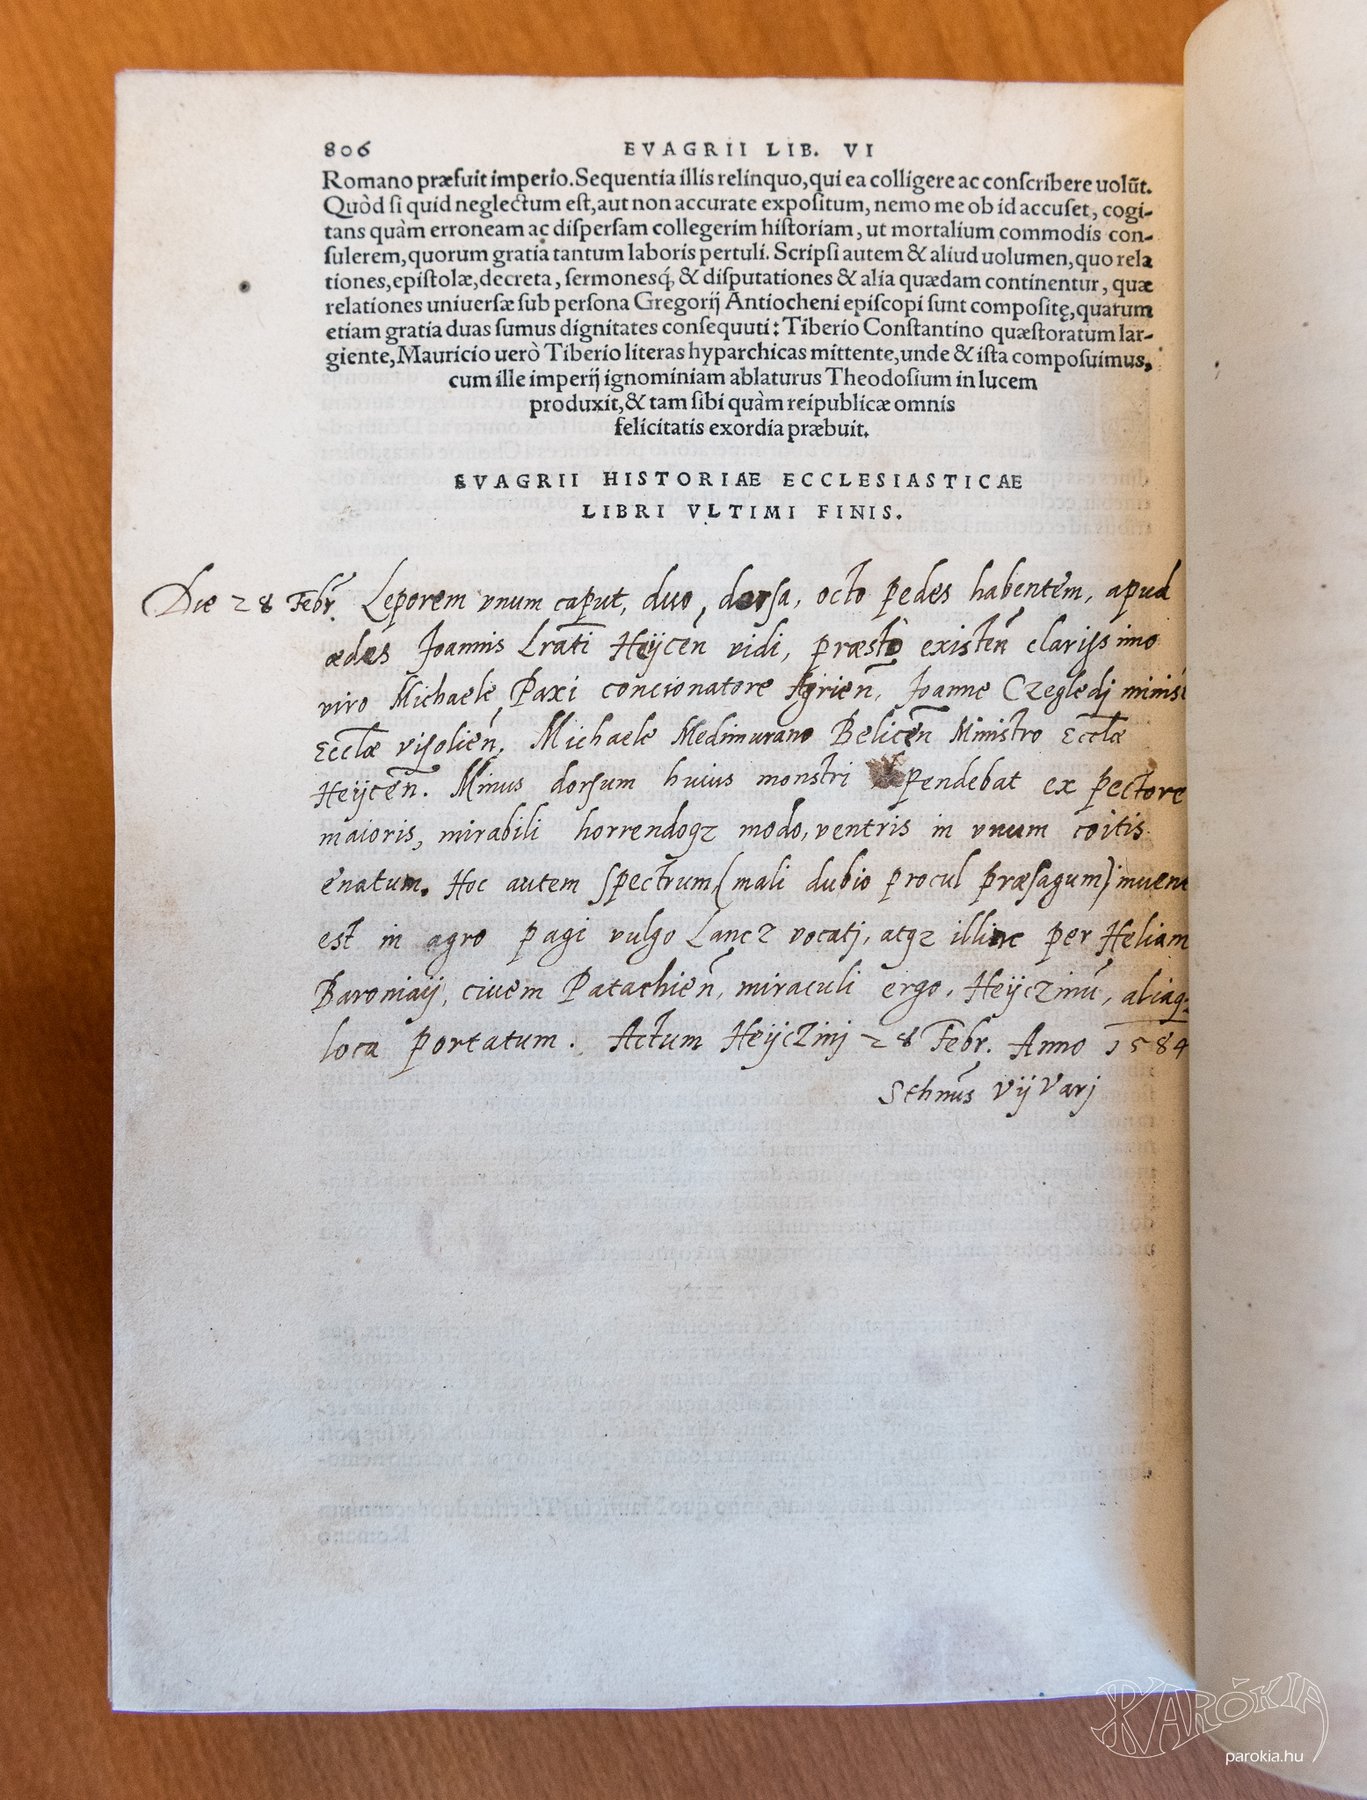 806 EVAGRII LIB. VI
Romano præfuit imperio. Sequentia illis relinquo, qui ea colligere ac conſcribere uolũt.
Quòd ſi quid neglectum eſt, aut non accurate expoſitum, nemo me ob id accuſet, cogi-
tans quàm erroneam ac diſperſam collegerim hiſtoriam, ut mortalium commodis con-
ſulerem, quorum gratia tantum laboris pertuli. Scripſi autem & aliud uolumen, quo rela
tiones, epiſtolæ, decreta, ſermonesq́; & diſputationes & alia quædam continentur, quæ
relationes uniuerſæ ſub perſona Gregorij Antiocheni epiſcopi ſunt compoſitę, quarum
etiam gratia duas ſumus dignitates conſequuti: Tiberio Conſtantino quæſtoratum lar-
giente, Mauricio uerò Tiberio literas hyparchicas mittente, unde & iſta compoſuimus,
cum ille imperij ignominiam ablaturus Theodoſium in lucem
produxit, & tam ſibi quàm reipublicæ omnis
felicitatis exordia præbuit.
EVAGRII HISTORIAE ECCLESIASTICAE
LIBRI VLTIMI FINIS.
Die 28 Febr. Leporem vnum caput, duo, dorsa, octo pedes habentem, apud
ædes Joannis Heÿceñ vidi, præsto existeñ clarissimo
viro Michaele Paxi concionatore Agrieñ, Joanne Czegledj
Eccłæ visolieñ, Michaele Medimurano Beliceñ Ministro Eccłæ
Heÿceñ. Minus dorsum huius monstri pendebat ex pectore
maioris, mirabili horrendoqz modo, ventris in vnum coitis
enatum. Hoc autem spectrum (mali dubio procul præsagum)
est in agro pagi vulgo Lancz vocatj, atqz illinc per Heliam
Baroniaÿ, ciuem Patachieñ, miraculi ergo, Heÿczinũ, aliaqz
loca portatum. Actum Heÿczinj 28 Febr. Anno 1584
Vÿ Varj
PARÓKIA
parokia.hu